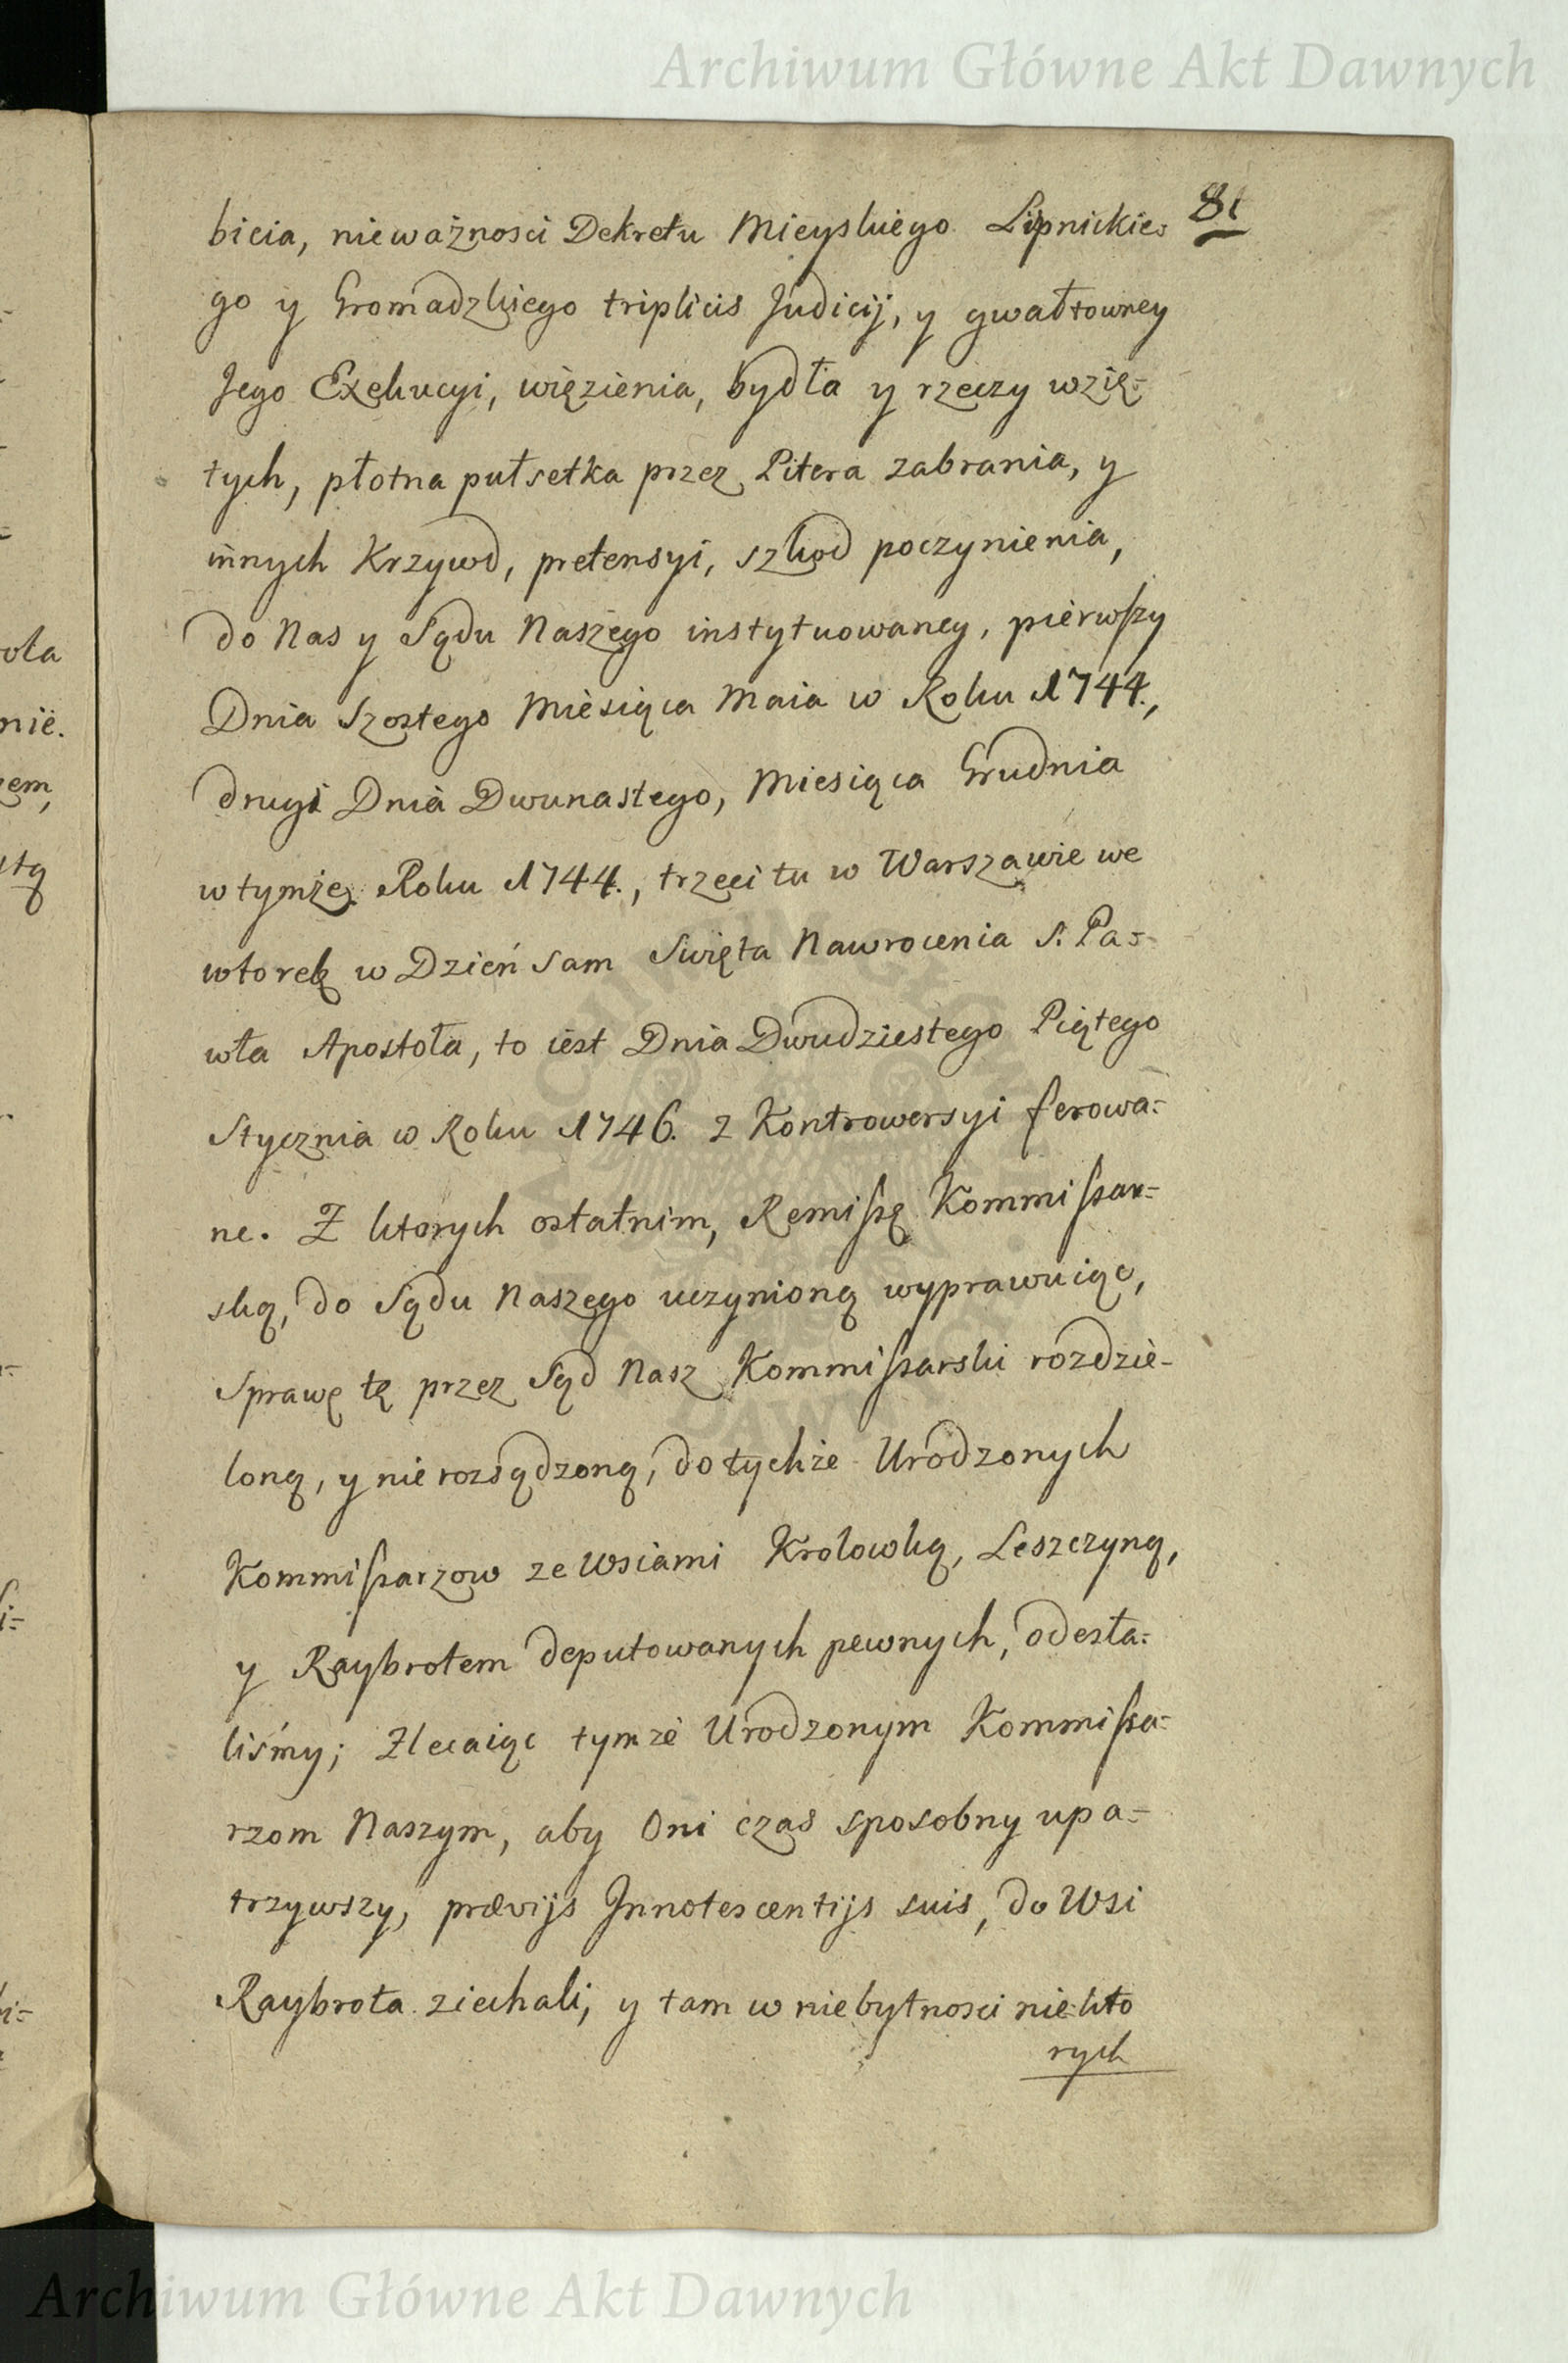 Archiwum Główne Akt Dawnych
81
bicia, nieważnosci Dekretu Mieyskiego Lipnickie=
go y Gromadzkiego triplicis Judicij, y gwałtowney
Jego Exekucyi, więzienia, bydła y rzeczy wzię=
tych, płotna pułsetka przez Pitera zabrania, y
innych Krzywd, pretensyi, szkod poczynienia,
do Nas y Sądu Naszego instytuowaney, pierwszy
Dnia Szostego Miesiąca Maia w Roku 1744.,
drugi Dnia Dwunastego, Miesiąca Grudnia
w tymże Roku 1744., trzeci tu w Warszawie we
wtorek w Dzień sam Swięta Nawrocenia S. Pa=
wła Apostoła, to iest Dnia Dwudziestego Piątego
Stycznia w Roku 1746. z Kontrowersyi ferowa=
ne. Z ktorych ostatnim, Remissę Kommissar=
ską, do Sądu Naszego uczynioną wyprawuiąc,
Sprawę tę przez Sąd Nasz Kommissarski rozdzie=
loną, y nie rozsądzoną, do tychże Urodzonych
Kommissarzow ze Wsiami Krolowką, Leszczyną,
y Raybrotem deputowanych pewnych, odesła=
liśmy; Zlecaiąc tymże Urodzonym Kommissa=
rzom Naszym, aby Oni czas sposobny upa=
trzywszy, prævijs Innotescentijs suis, do Wsi
Raybrota ziechali, y tam w niebytnosci niekto
rych
ola
nie.
zem,
stą
Archiwum Główne Akt Dawnych